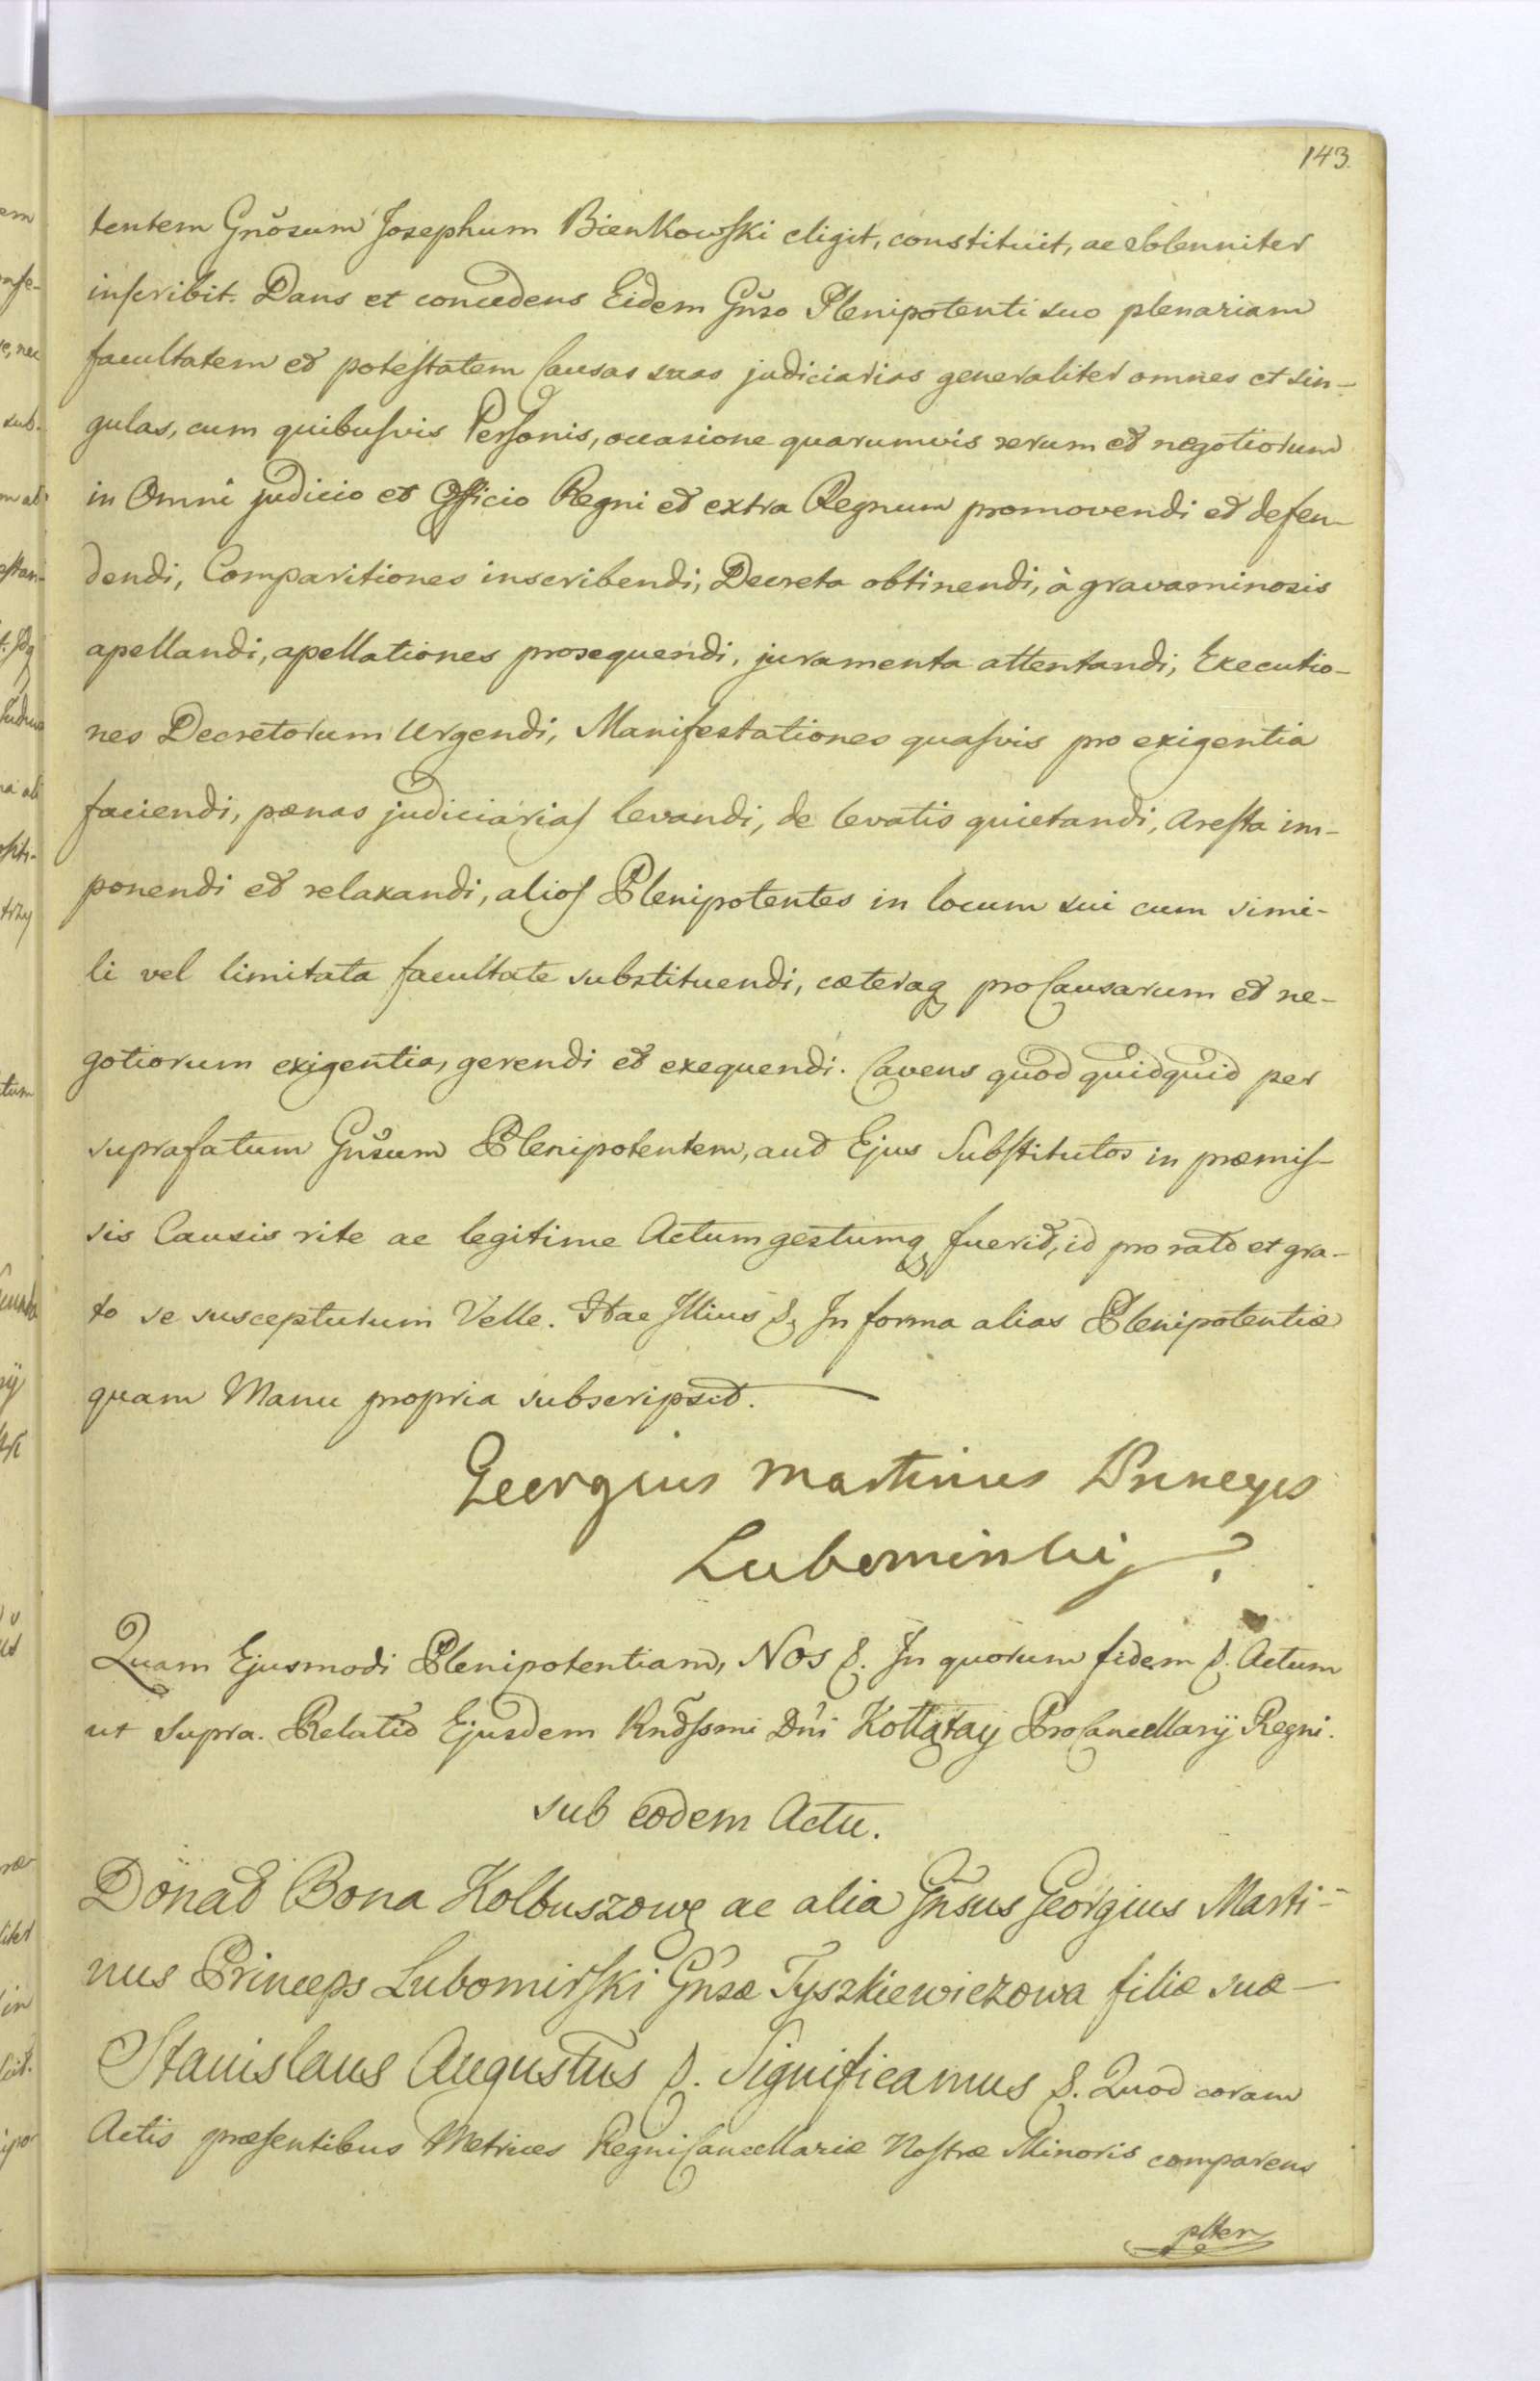 143.
tentem Gnõsum Josephum Bienkowski eligit, constituit, ac Solenniter
inscribit. Dans et concedens Eidem Gñso Plenipotenti suo plenariam
facultatem et potestatem Causas suas judiciarias generaliter omnes et sin-
gulas, cum quibusvis Personis, occasione quarumvis rerum et negotiorum
in Omni judicio et Officio Regni et extra Regnum promovendi et defen-
dendi, Comparitiones inscribendi, Decreta obtinendi, à gravaminosis
apellandi, apellationes prosequendi, juramenta attentandi, Executio-
nes Decretorum Urgendi, Manifestationes quasvis pro exigentia
faciendi, pænas judiciarias levandi, de levatis quietandi, Aresta im-
ponendi et relaxandi, alios Plenipotentes in locum sui cum simi-
li vel limitata facultate substituendi, cæteraq pro Causarum et ne-
gotiorum exigentia, gerendi et exequendi. Cavens quod quidquid per
suprafatum Gñsum Plenipotentem, aut Ejus Substitutos in præmis-
sis Causis rite ac legitime Actum gestumq fuerit, id pro rato et gra-
to se suscepturum Velle. Hac Illius &. In forma alias Plenipotentiæ
quam Manu propria subscripsit.
Georgius Martinus Princeps
Lubomirski
Quam Ejusmodi Plenipotentiam, Nos &. In quorum fidem &. Actum
ut Supra. Relatio Ejusdem Rndssmi Dñi Kołłątay ProCancellarÿ Regni.
sub eodem Actu.
Donat Bona Kolbuszowę ac alia Gñsus Georgius Marti-
nus Princeps Lubomirski Gñsæ Tyszkiewiczowa filiæ suæ
Stanislaus Augustus &. Significamus &. Quod coram
Actis præsentibus Metrices Regni Cancellariæ Nostræ Minoris comparens
plter